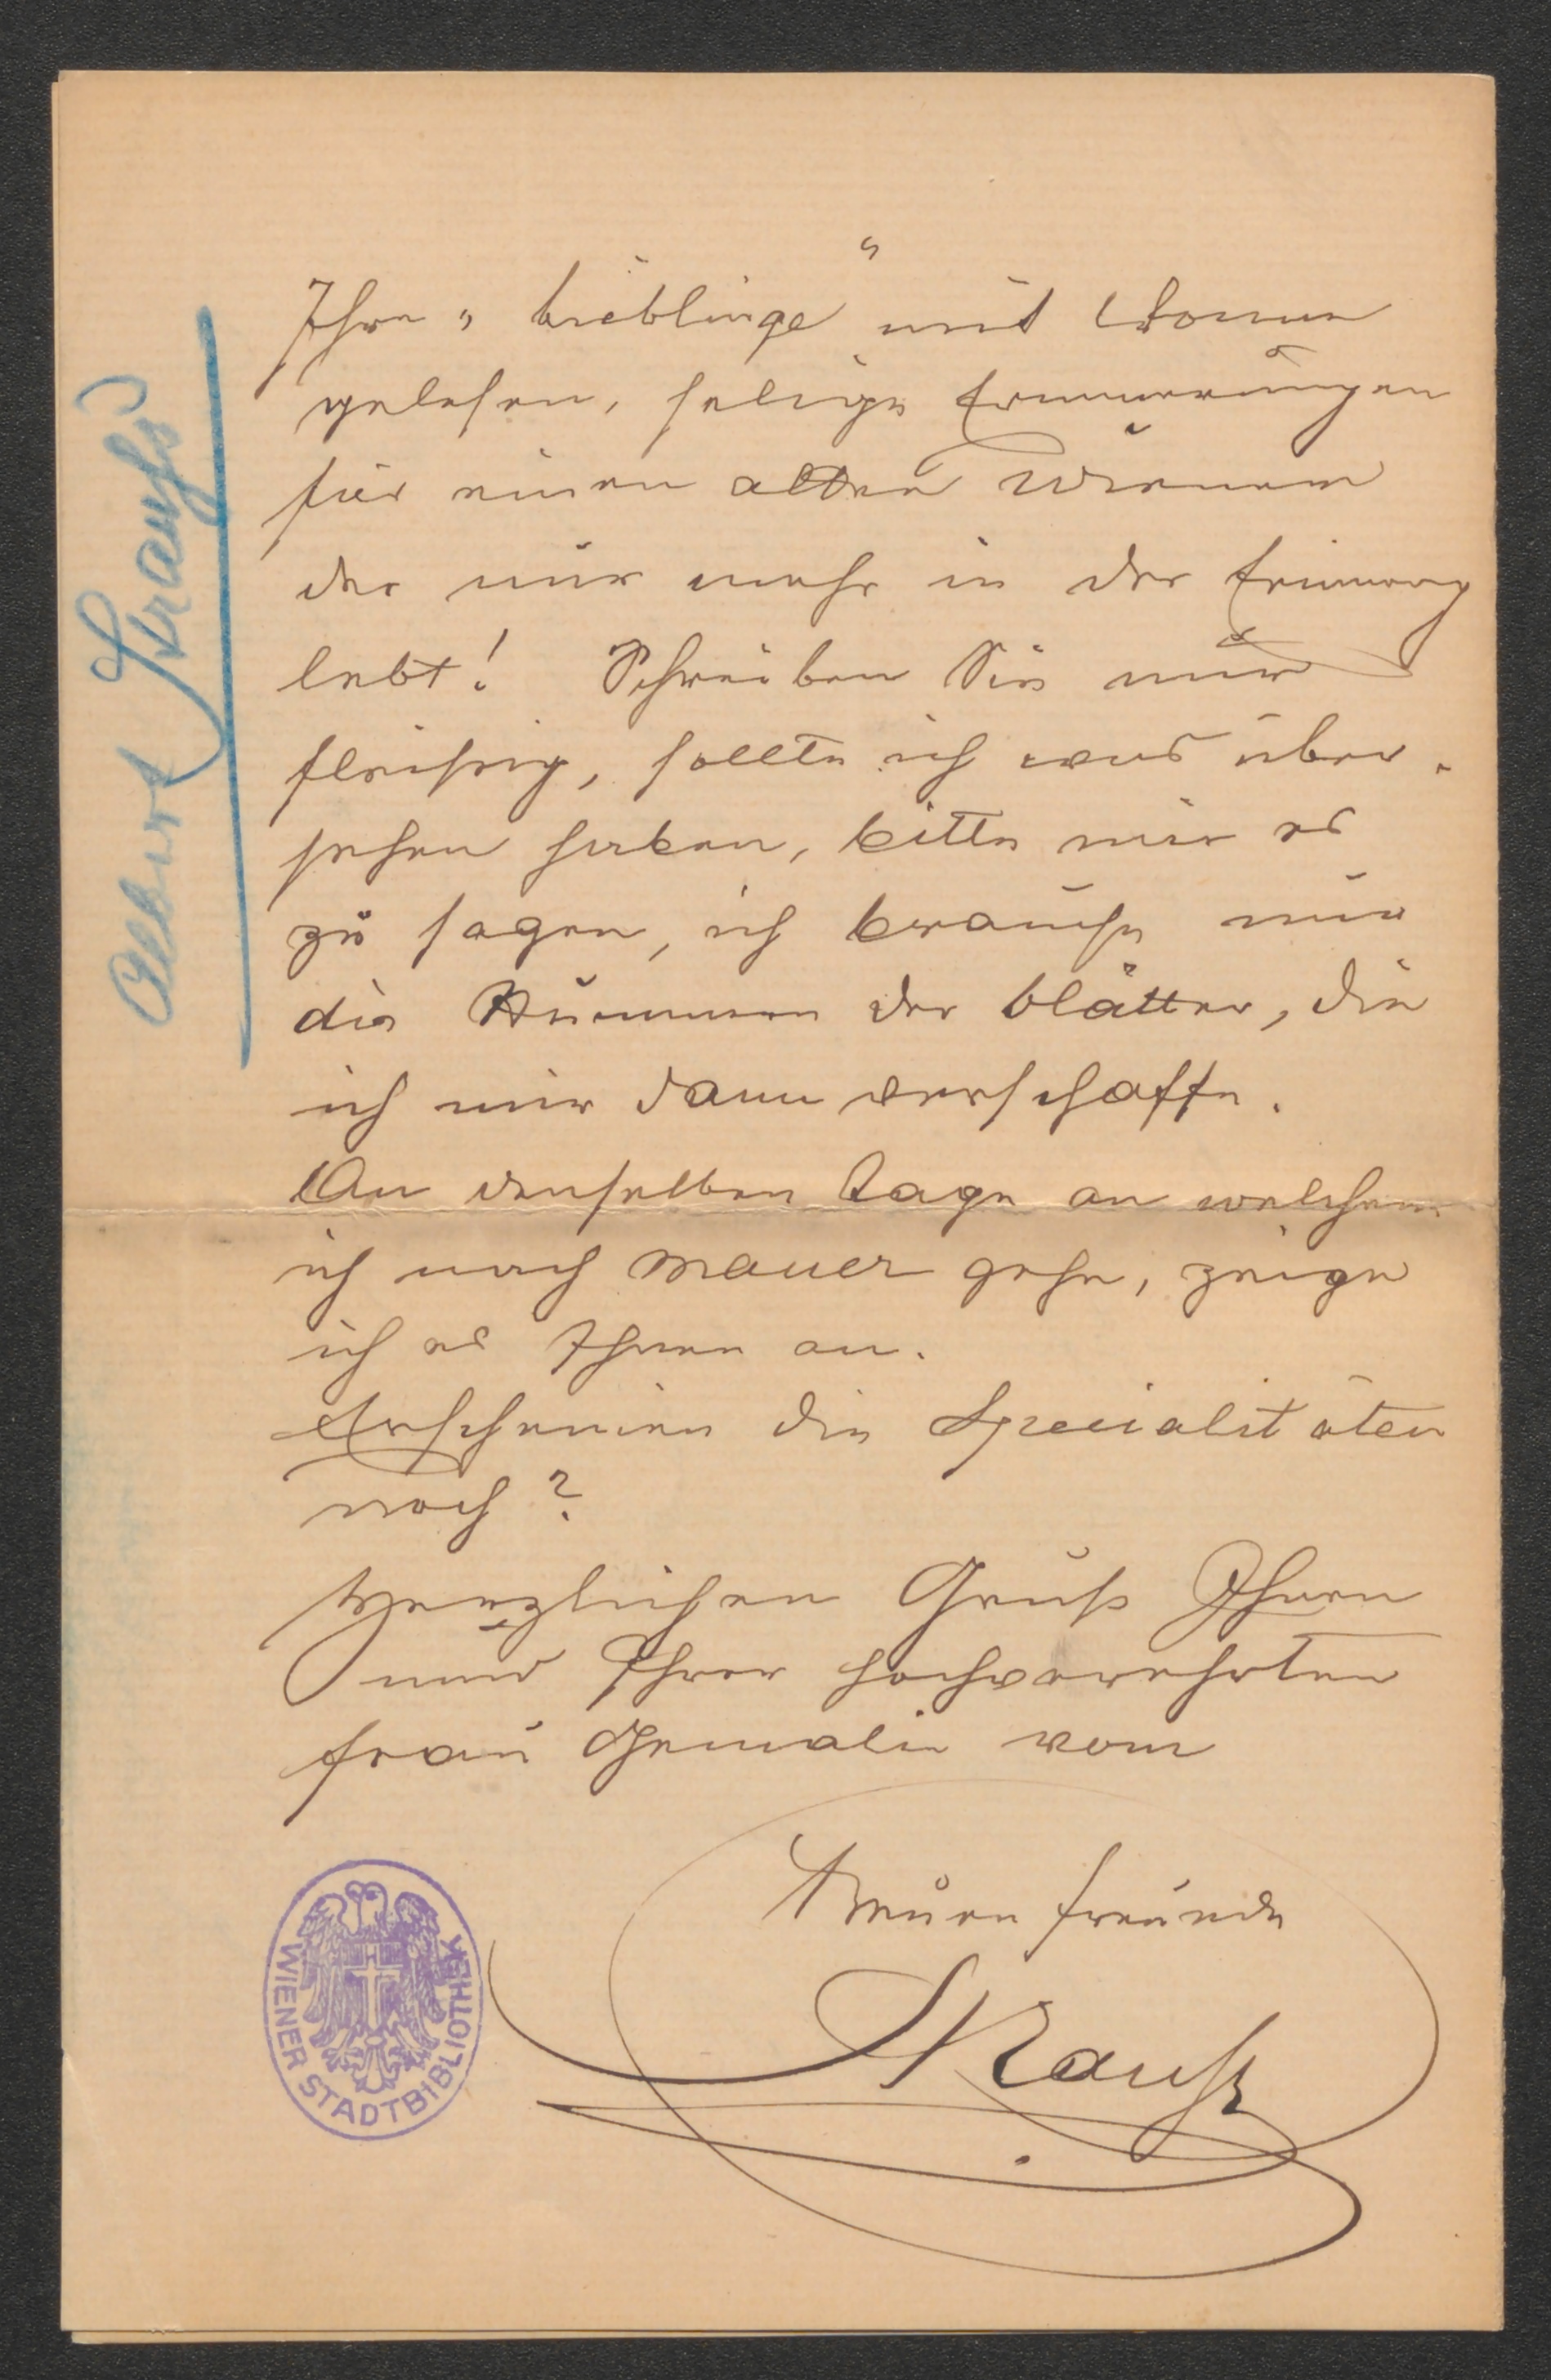 Ihre „Lieblinge“ mit Wonne
gelesen, selige Erinnerungen
für einen alten Wiener
der nur mehr in der Erinnerung
lebt! Schreiben Sie nur
fleißig, sollte ich was über-
sehen haben, bitte mir es
zu sagen, ich brauche nur
die Nummern der Blätter, die
ich mir dann verschaffe.
An denselben Tage an welchem
ich nach Mauer gehe, zeige
ich es Ihnen an.
Erscheinen die Specialitäten
noch?
Herzlichen Gruß Ihnen
und Ihrer hochverehrten
Frau Gemalin vom
Treuen Freunde
Strauß
Albert Strauß
WIENER STADTBIBLIOTHEK